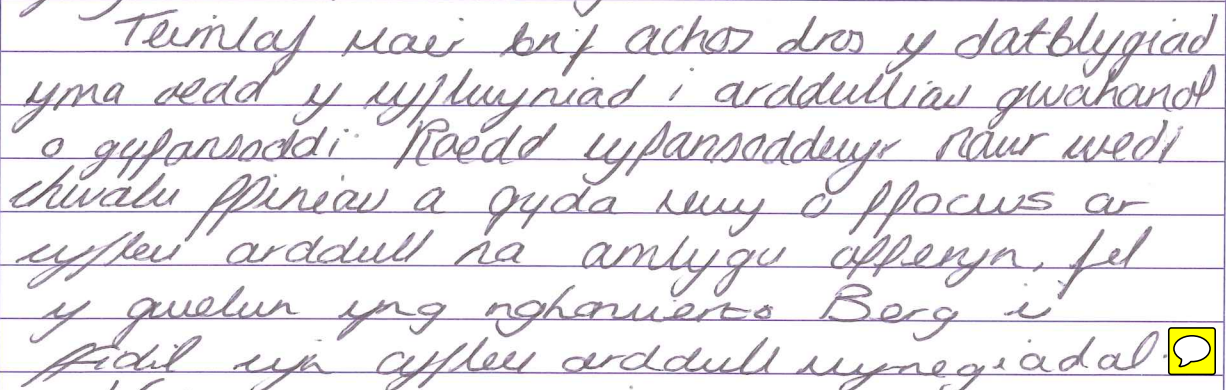 Teimlaf mai'r brif achos dros y datblygiad
yma oedd y cyflwyniad i arddulliau gwahanol
o gyfansoddi. Roedd cyfansoddwyr nawr wedi
chwalu ffiniau a gyda mwy o ffocws ar
cyfleu arddull na amlygu offeryn, fel
y gwelwn yng nghonwierto Berg i
ffidil yn cyfleu arddull mynegiadol